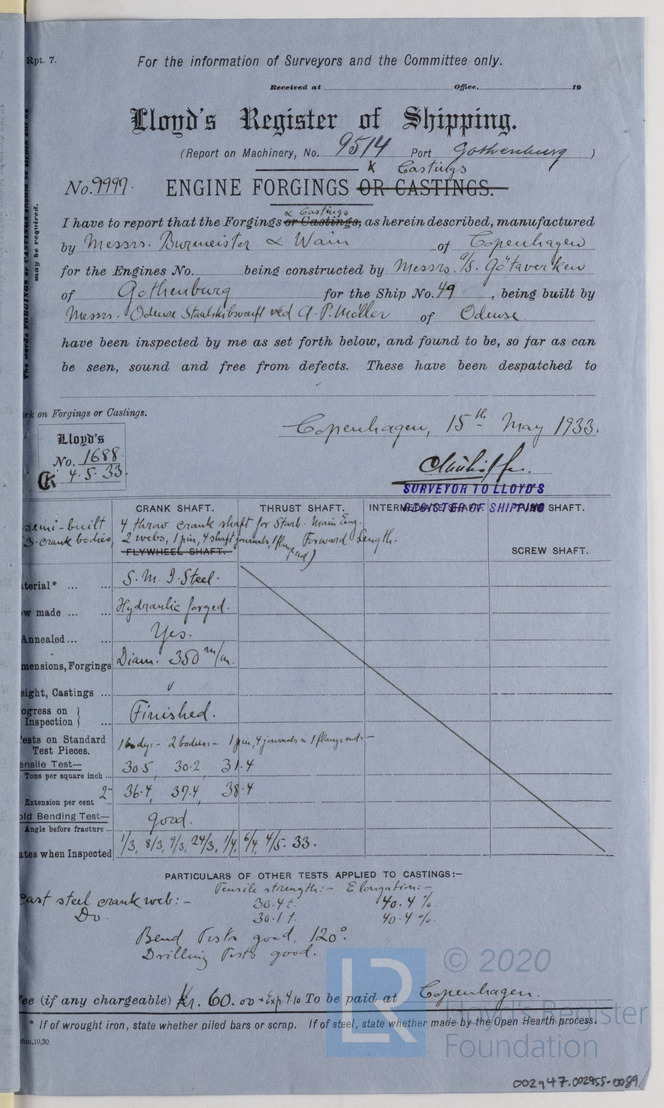 Rpt. 7.
For the information of Surveyors and the Committee only.
Received at Office, 19
Lloyd's Register of Shipping.
(Report on Machinery, No. 9514 Port Gothenburg )
& Castings
No. 9997. ENGINE FORGINGS OR CASTINGS.
& Castings
I have to report that the Forgings or Castings, as herein described, manufactured
by Messrs. Burmeister & Wain of Copenhagen
for the Engines No. being constructed by Messrs. A/S. Götaverken
of Gothenburg for the Ship No. 49, being built by
Messrs. Odense Staalskibsværft ved A. P. Möller of Odense
have been inspected by me as set forth below, and found to be, so far as can
be seen, sound and free from defects. These have been despatched to
may be required.
rk on Forgings or Castings.
Copenhagen, 15th May 1933.
Lloyd's
No. 1688
4.5.33.
SURVEYOR TO LLOYD'S
REGISTER OF SHIPPING
CRANK SHAFT. THRUST SHAFT. SHAFT.
emi-built 4 throw crank shaft for Starb. Main Eng.
3 crank bodies, 2 webs, 1 pin, 4 shaft journals, Forward Length.
FLYWHEEL SHAFT. SCREW SHAFT.
terial* ... ... S. M. I. Steel.
w made ... ... Hydraulic forged.
Annealed ... ... Yes.
mensions, Forgings Diam. 350 m/m.
eight, Castings ...
ogress on Inspection } ... Finished.
ests on Standard Test Pieces. 1 body:- 2 bodies:- 1 pin, 4 journals & 1 flange end:-
ensile Test—
Tons per square inch ... 30.5 30.2 31.4
Extension per cent 2" 36.4, 37.4, 38.4
old Bending Test—
Angle before fracture ... good.
ates when Inspected 1/3, 8/3, 9/3, 24/3, 1/4, 6/4, 4/5. 33.
PARTICULARS OF OTHER TESTS APPLIED TO CASTINGS:—
Tensile strength:- Elongation:-
ast steel crank web:- 30.4 t. 40.4 %.
Do 30.1 t. 40.4 %.
Bend Tests good, 120°.
Drilling Tests good.
© 2020
ee (if any chargeable) Kr. 60.00 + Exp. 4.10 To be paid at Copenhagen.
* If of wrought iron, state whether piled bars or scrap. If of steel, state whether made by the Open Hearth process.
LR
Lloyd's Register
Foundation
002947.002955-0089